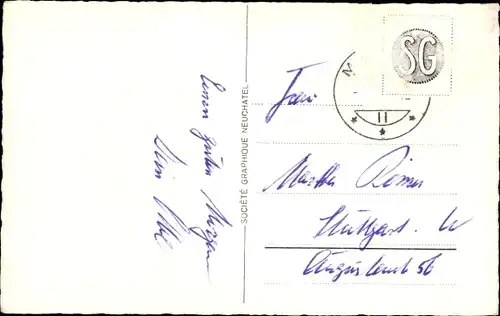 Einen guten Morgen
Dein
SOCIÉTÉ GRAPHIQUE NEUCHATEL
SG
Frau
Martha Römer
Stuttgart. W
Augustenstr. 56